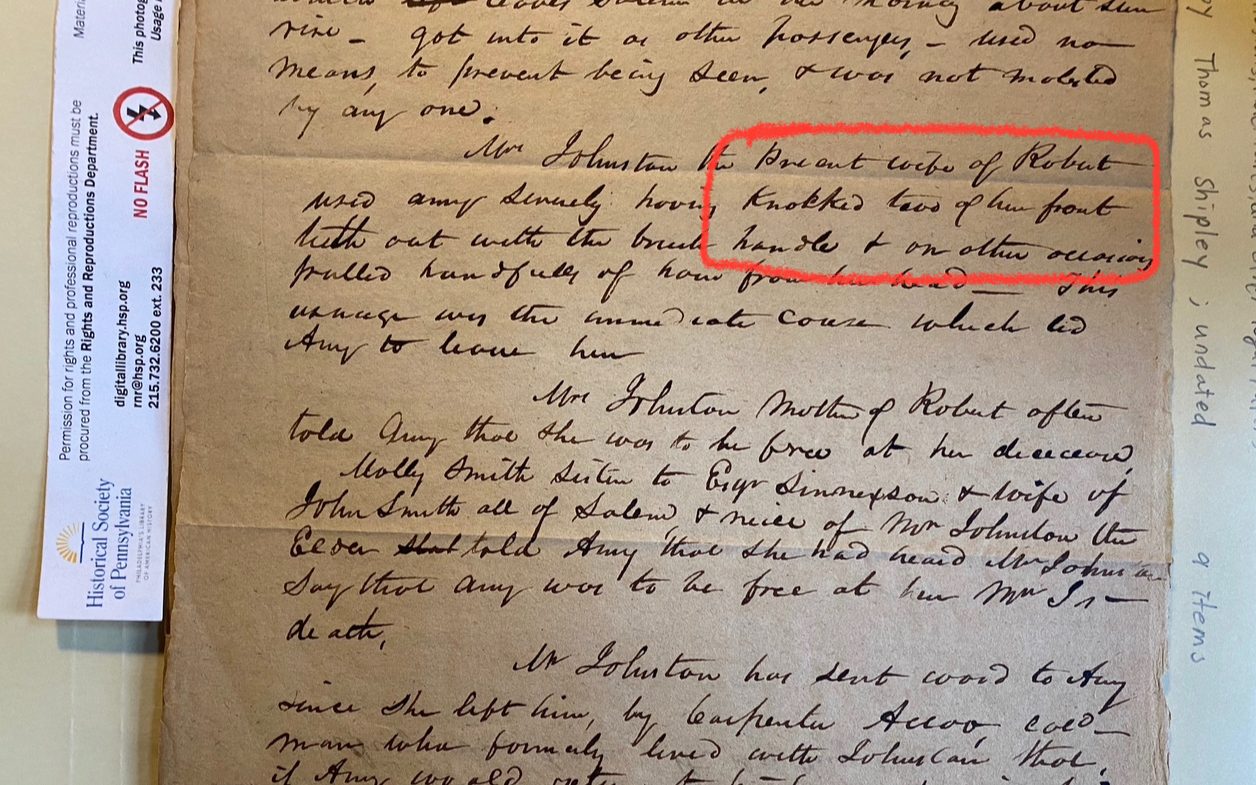 leaves Salem in the morning about sun
rise - got into it as other passengers, - used no
means, to prevent being seen, & was not molested
by any one.
Mrs Johnston the Present wife of Robert
used amy severely having Knokked two of her front
teeth out with the brush handle & on other occasions
pulled handfulls of hair from her head - This
useage was the immediate cause which led
Amy to leave her
Mrs Johnston Mother of Robert often
told Amy that she was to be free at her decease,
Molly Smith sister to Esqr Sinnexson & wife of
John Smith all of Salem & neice of Mrs Johnston the
Elder that told Amy that she had heard Mrs Johnston
say that amy was to be free at her Mrs Js -
death,
Mr Johnston has sent word to Amy
since she left him, by Carpenter cold -
man who formerly lived with Johnston that,
if Amy would
Permission for rights and professional reproductions must be
procured from the Rights and Reproductions Department.
digitallibrary.hsp.org
rnr@hsp.org
215.732.6200 ext. 233
NO FLASH
This photog
Usage
Materi
Historical Society
of Pennsylvania
PHILADELPHIA'S LIBRARY
OF AMERICAN HISTORY
by Thomas Shipley ; undated 9 items